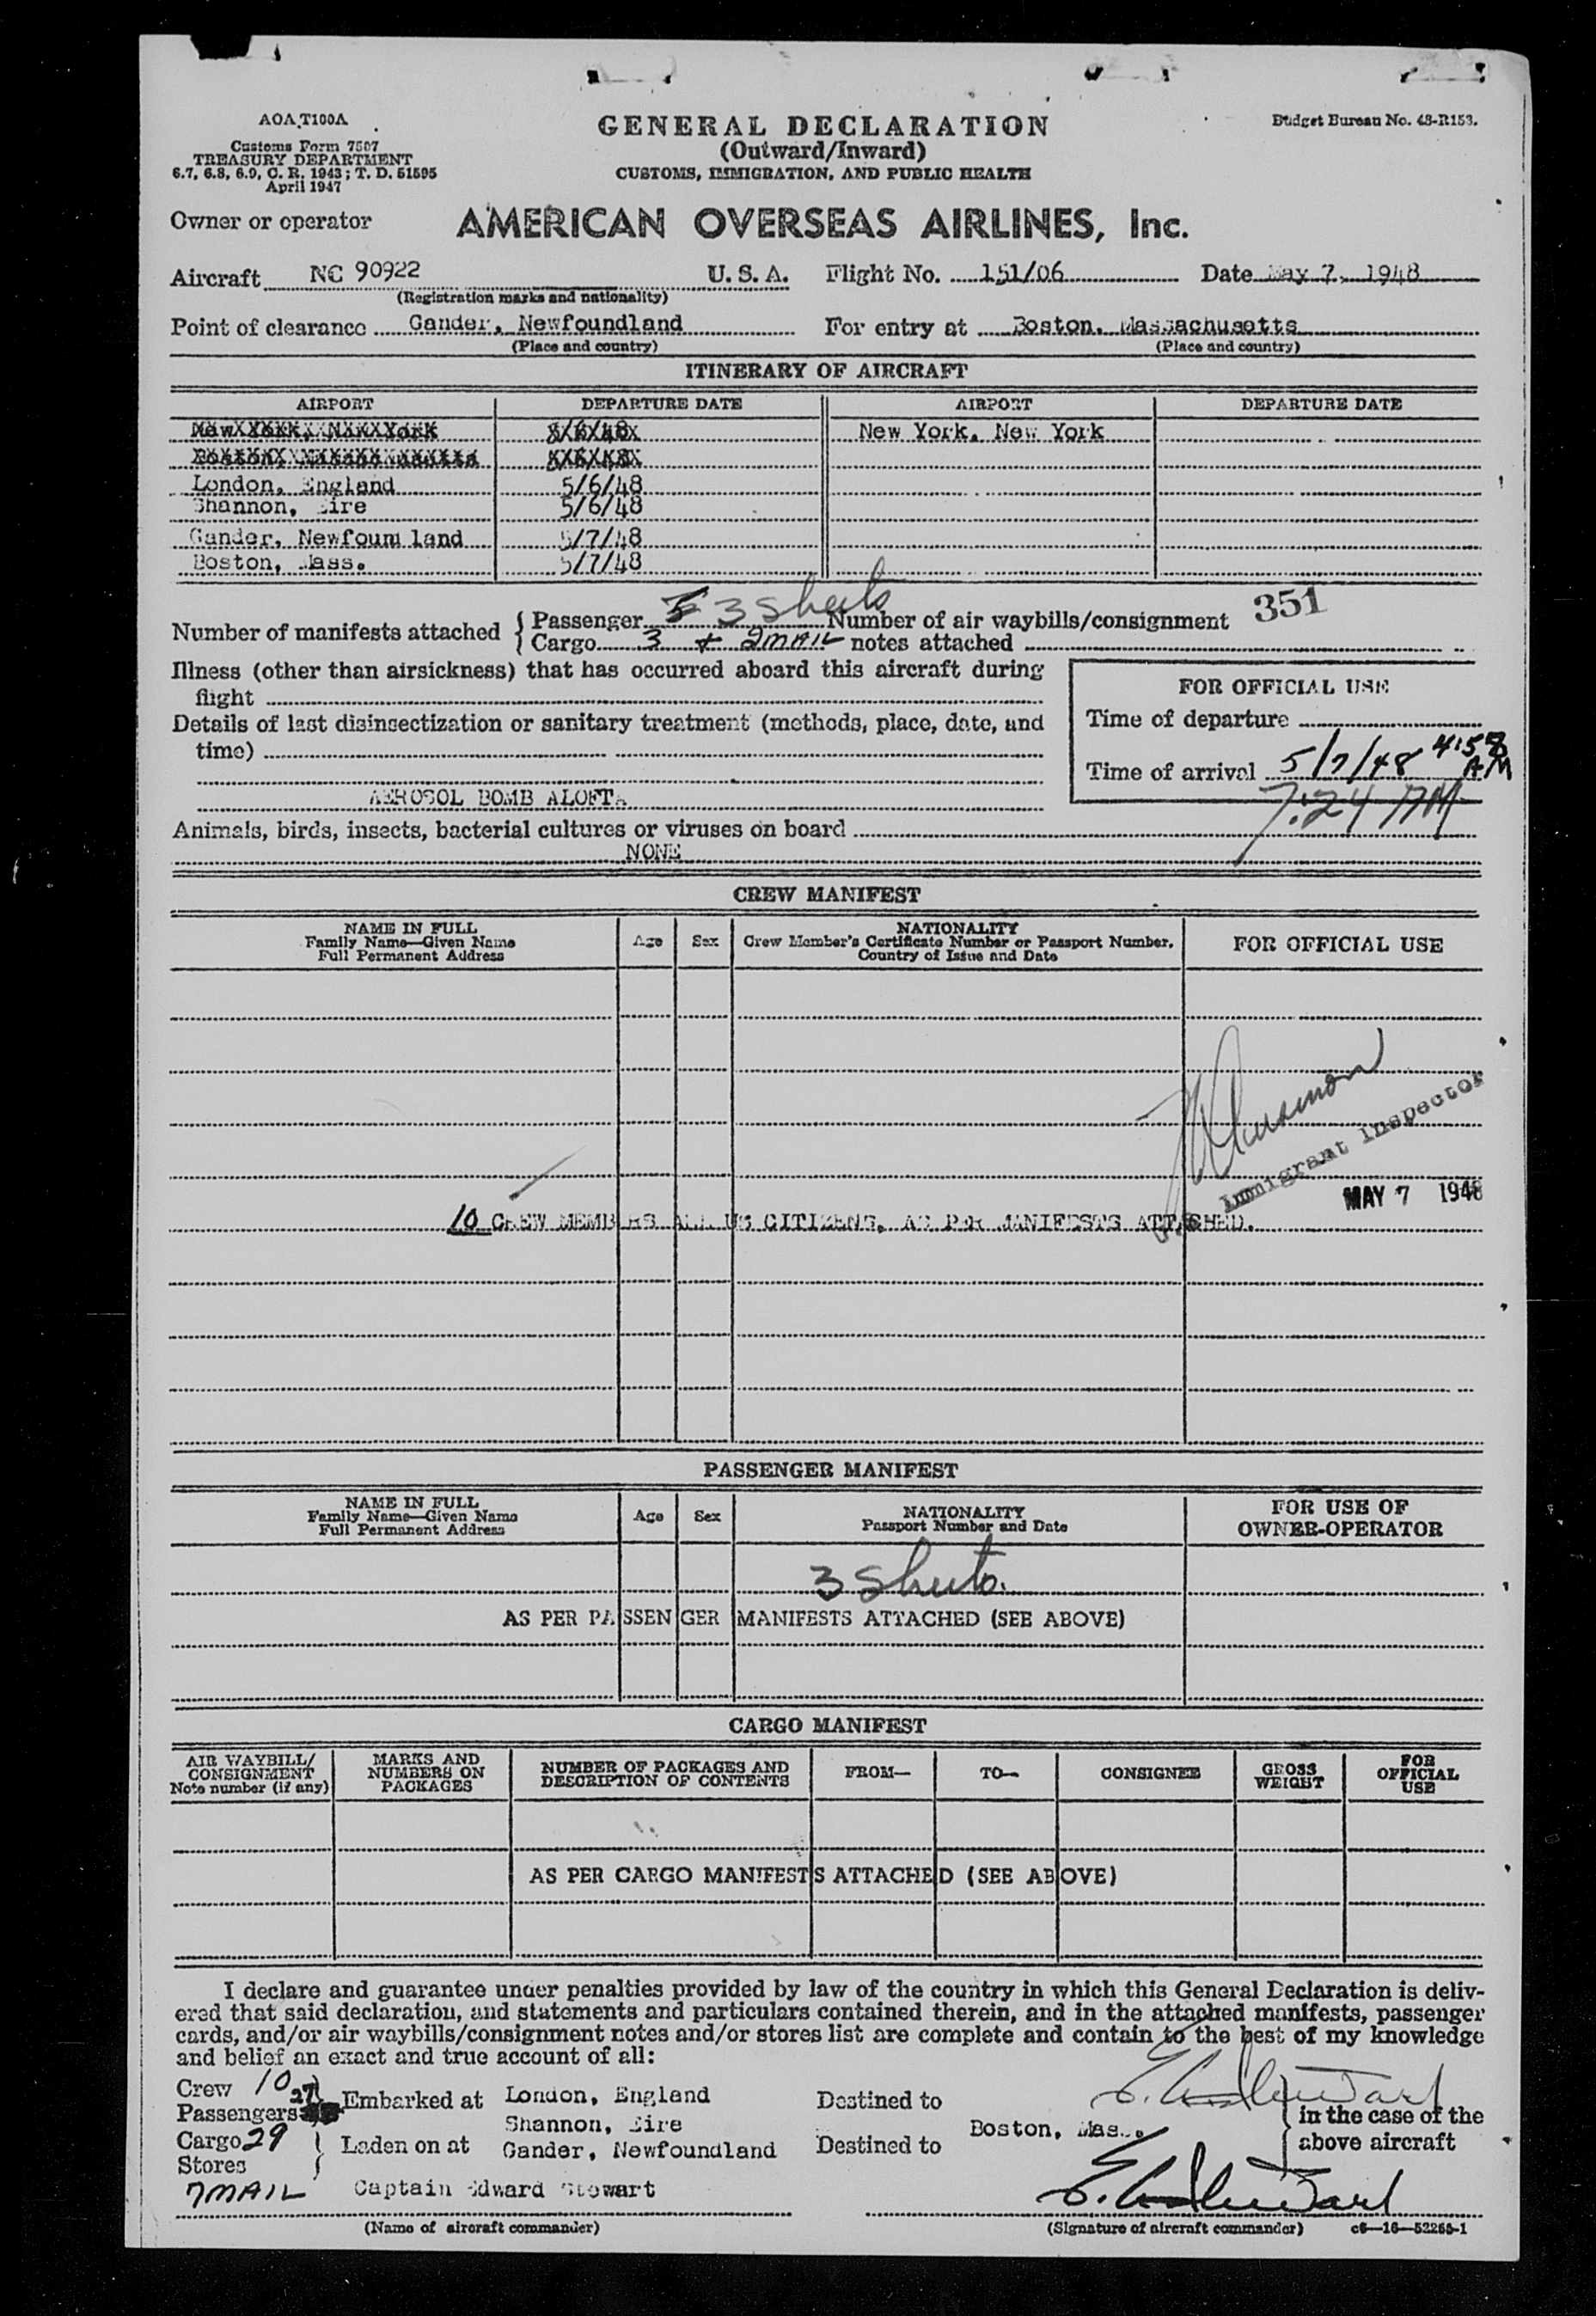 AOA T100A
Customs Form 7507
TREASURY DEPARTMENT
6.7, 6.8, 6.9, C. R. 1943; T. D. 51595
April 1947
GENERAL DECLARATION
(Outward/Inward)
CUSTOMS, IMMIGRATION, AND PUBLIC HEALTH
Budget Bureau No. 48-R153.
Owner or operator AMERICAN OVERSEAS AIRLINES, Inc.
Aircraft NC 90922 U. S. A. Flight No. 151/06 Date May 7, 1948
(Registration marks and nationality)
Point of clearance Gander, Newfoundland For entry at Boston, Massachusetts
(Place and country) (Place and country)
ITINERARY OF AIRCRAFT
AIRPORT DEPARTURE DATE AIRPORT DEPARTURE DATE
New York, New York
London, England 5/6/48
Shannon, Eire 5/6/48
Gander, Newfoundland 5/7/48
Boston, Mass. 5/7/48
Number of manifests attached { Passenger 3 sheets Number of air waybills/consignment 351
Cargo 3 + 2 MAIL notes attached
Illness (other than airsickness) that has occurred aboard this aircraft during
flight
Details of last disinsectization or sanitary treatment (methods, place, date, and
time)
AEROSOL BOMB ALOFT
FOR OFFICIAL USE
Time of departure
Time of arrival 5/7/48 4:58 AM
7:24 PM
Animals, birds, insects, bacterial cultures or viruses on board
NONE
CREW MANIFEST
NAME IN FULL
Family Name—Given Name
Full Permanent Address
Age Sex
NATIONALITY
Crew Member's Certificate Number or Passport Number,
Country of Issue and Date
FOR OFFICIAL USE
Immigrant Inspector
MAY 7 1948
10 CREW MEMBERS ALL US CITIZENS, AS PER MANIFESTS ATTACHED.
PASSENGER MANIFEST
NAME IN FULL
Family Name—Given Name
Full Permanent Address
Age Sex
NATIONALITY
Passport Number and Date
FOR USE OF
OWNER-OPERATOR
3 sheets.
AS PER PASSENGER MANIFESTS ATTACHED (SEE ABOVE)
CARGO MANIFEST
AIR WAYBILL/
CONSIGNMENT
Note number (if any)
MARKS AND
NUMBERS ON
PACKAGES
NUMBER OF PACKAGES AND
DESCRIPTION OF CONTENTS
FROM— TO— CONSIGNEE
GROSS
WEIGHT
FOR
OFFICIAL
USE
AS PER CARGO MANIFESTS ATTACHED (SEE ABOVE)
I declare and guarantee under penalties provided by law of the country in which this General Declaration is deliv-
ered that said declaration, and statements and particulars contained therein, and in the attached manifests, passenger
cards, and/or air waybills/consignment notes and/or stores list are complete and contain to the best of my knowledge
and belief an exact and true account of all:
Crew 10
Passengers 27 Embarked at London, England Destined to
Shannon, Eire Boston, Mass. in the case of the
Cargo 29 Laden on at Gander, Newfoundland Destined to above aircraft
Stores
7 MAIL Captain Edward Stewart
(Name of aircraft commander) (Signature of aircraft commander) c6—16—52265-1